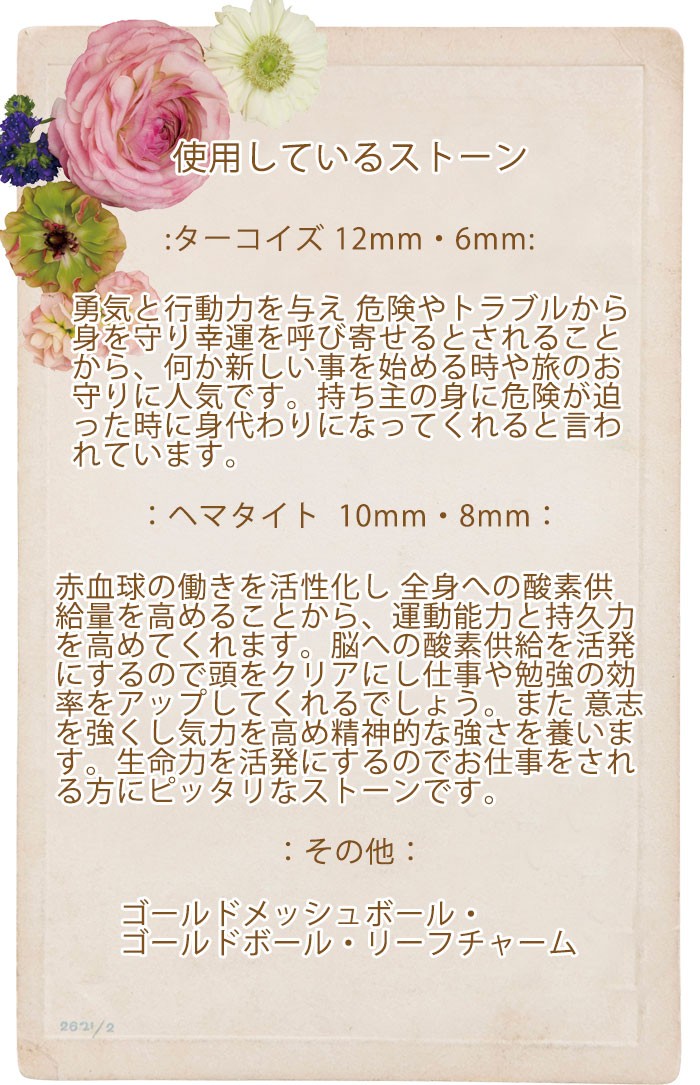 使用しているストーン
:ターコイズ 12mm・6mm:
勇気と行動力を与え 危険やトラブルから
身を守り幸運を呼び寄せるとされること
から、何か新しい事を始める時や旅のお
守りに人気です。持ち主の身に危険が迫
った時に身代わりになってくれると言わ
れています。
：ヘマタイト 10mm・8mm：
赤血球の働きを活性化し 全身への酸素供
給量を高めることから、運動能力と持久力
を高めてくれます。脳への酸素供給を活発
にするので頭をクリアにし仕事や勉強の効
率をアップしてくれるでしょう。また 意志
を強くし気力を高め精神的な強さを養いま
す。生命力を活発にするのでお仕事をされ
る方にピッタリなストーンです。
：その他：
ゴールドメッシュボール・
ゴールドボール・リーフチャーム
2621/2